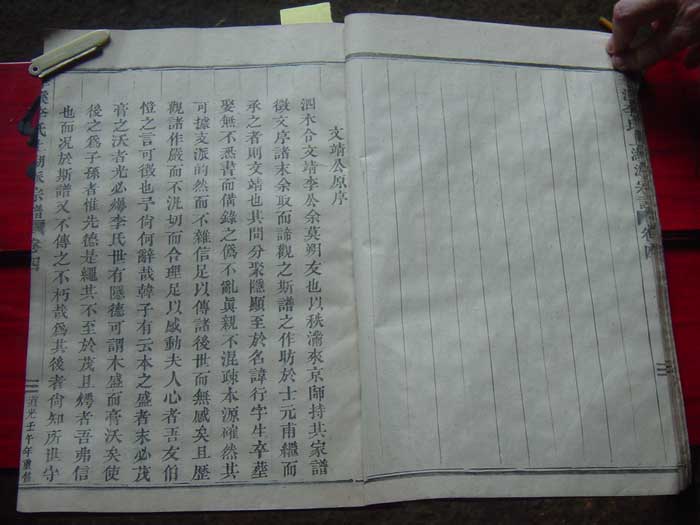 文靖公原序
泗水合文靖李公余莫朔友也以秩滿來京師持其家譜
徵文序諸末余取而諦觀之斯譜之作昉於士元甫繼而
承之者則文靖也其間分聚隱顯至於名諱行字生卒塟
娶無不悉書而備錄之僞不亂眞親不混疎本源確然其
可據支派的然而不雜信足以傳諸後世而無慼矣且歷
觀諸作嚴而不汎切而合理足以感動夫人心者吾友伯
愷之言可徵也予何何辭哉韓子有云本之盛者末必茂
膏之沃者光必燁李氏世有隱德可謂木盛而膏沃矣使
後之爲子孫者惟先德是繩其不至於茂且燁者吾弗信
也而况於斯譜又不傳之不朽哉爲其後者尙知所世守
道光壬午年重修
李氏 宗譜 卷四